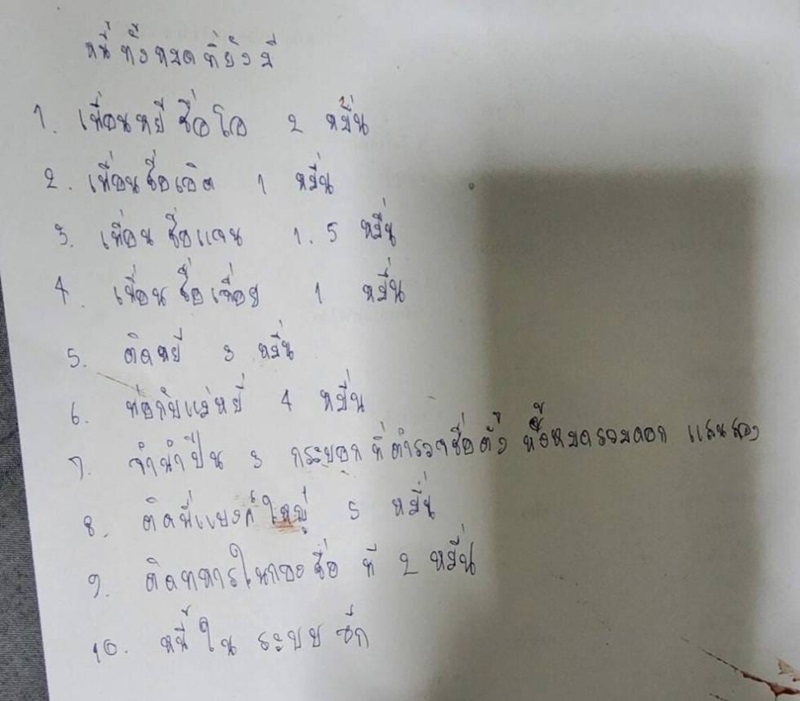 หนี้ทั้งหมดที่ยังมี
1. เพื่อนหยีชื่อโอ 2 หมื่น
2. เพื่อนชื่อเอิต 1 หมื่น
3. เพื่อนชื่อแจน 1.5 หมื่น
4. เพื่อนชื่อเจื่อย 1 หมื่น
5. ติดหยี 3 หมื่น
6. พ่อกับแม่หยี 4 หมื่น
7. จำนำปืน 3 กระบอกที่ตำรวจชื่อตั้ง ทั้งหมดรวมดอก แสนสอง
8. ติดพี่แบงก์ใหญ่ 5 หมื่น
9. ติดทหารในกองชื่อ ที 2 หมื่น
10. หนี้ใน ระบบ อีก